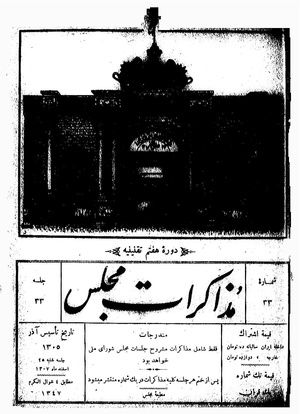 دورهٔ هفتم تقنینیه
شماره
۳۳
مذاکرات مجلس
جلسه
۳۳
قیمة اشتراك
داخله ایران سالیانه ده تومان
خارجه « دوازده تومان
قیمة تك شماره
یك قران
مندرجات
فقط شامل مذاکرات مشروح جلسات مجلس شورای ملی
خواهد بود
پس از ختم هر جلسه کلیه مذاکرات در یك شماره منتشر میشود
مطبعهٔ مجلس
تاریخ تأسیس آذر
۱۳۰۵
جلسه شنبه ۲۵
اسفند ماه ۱۳۰۷
مطابق ٤ شوال المکرم
۱۳٤۷